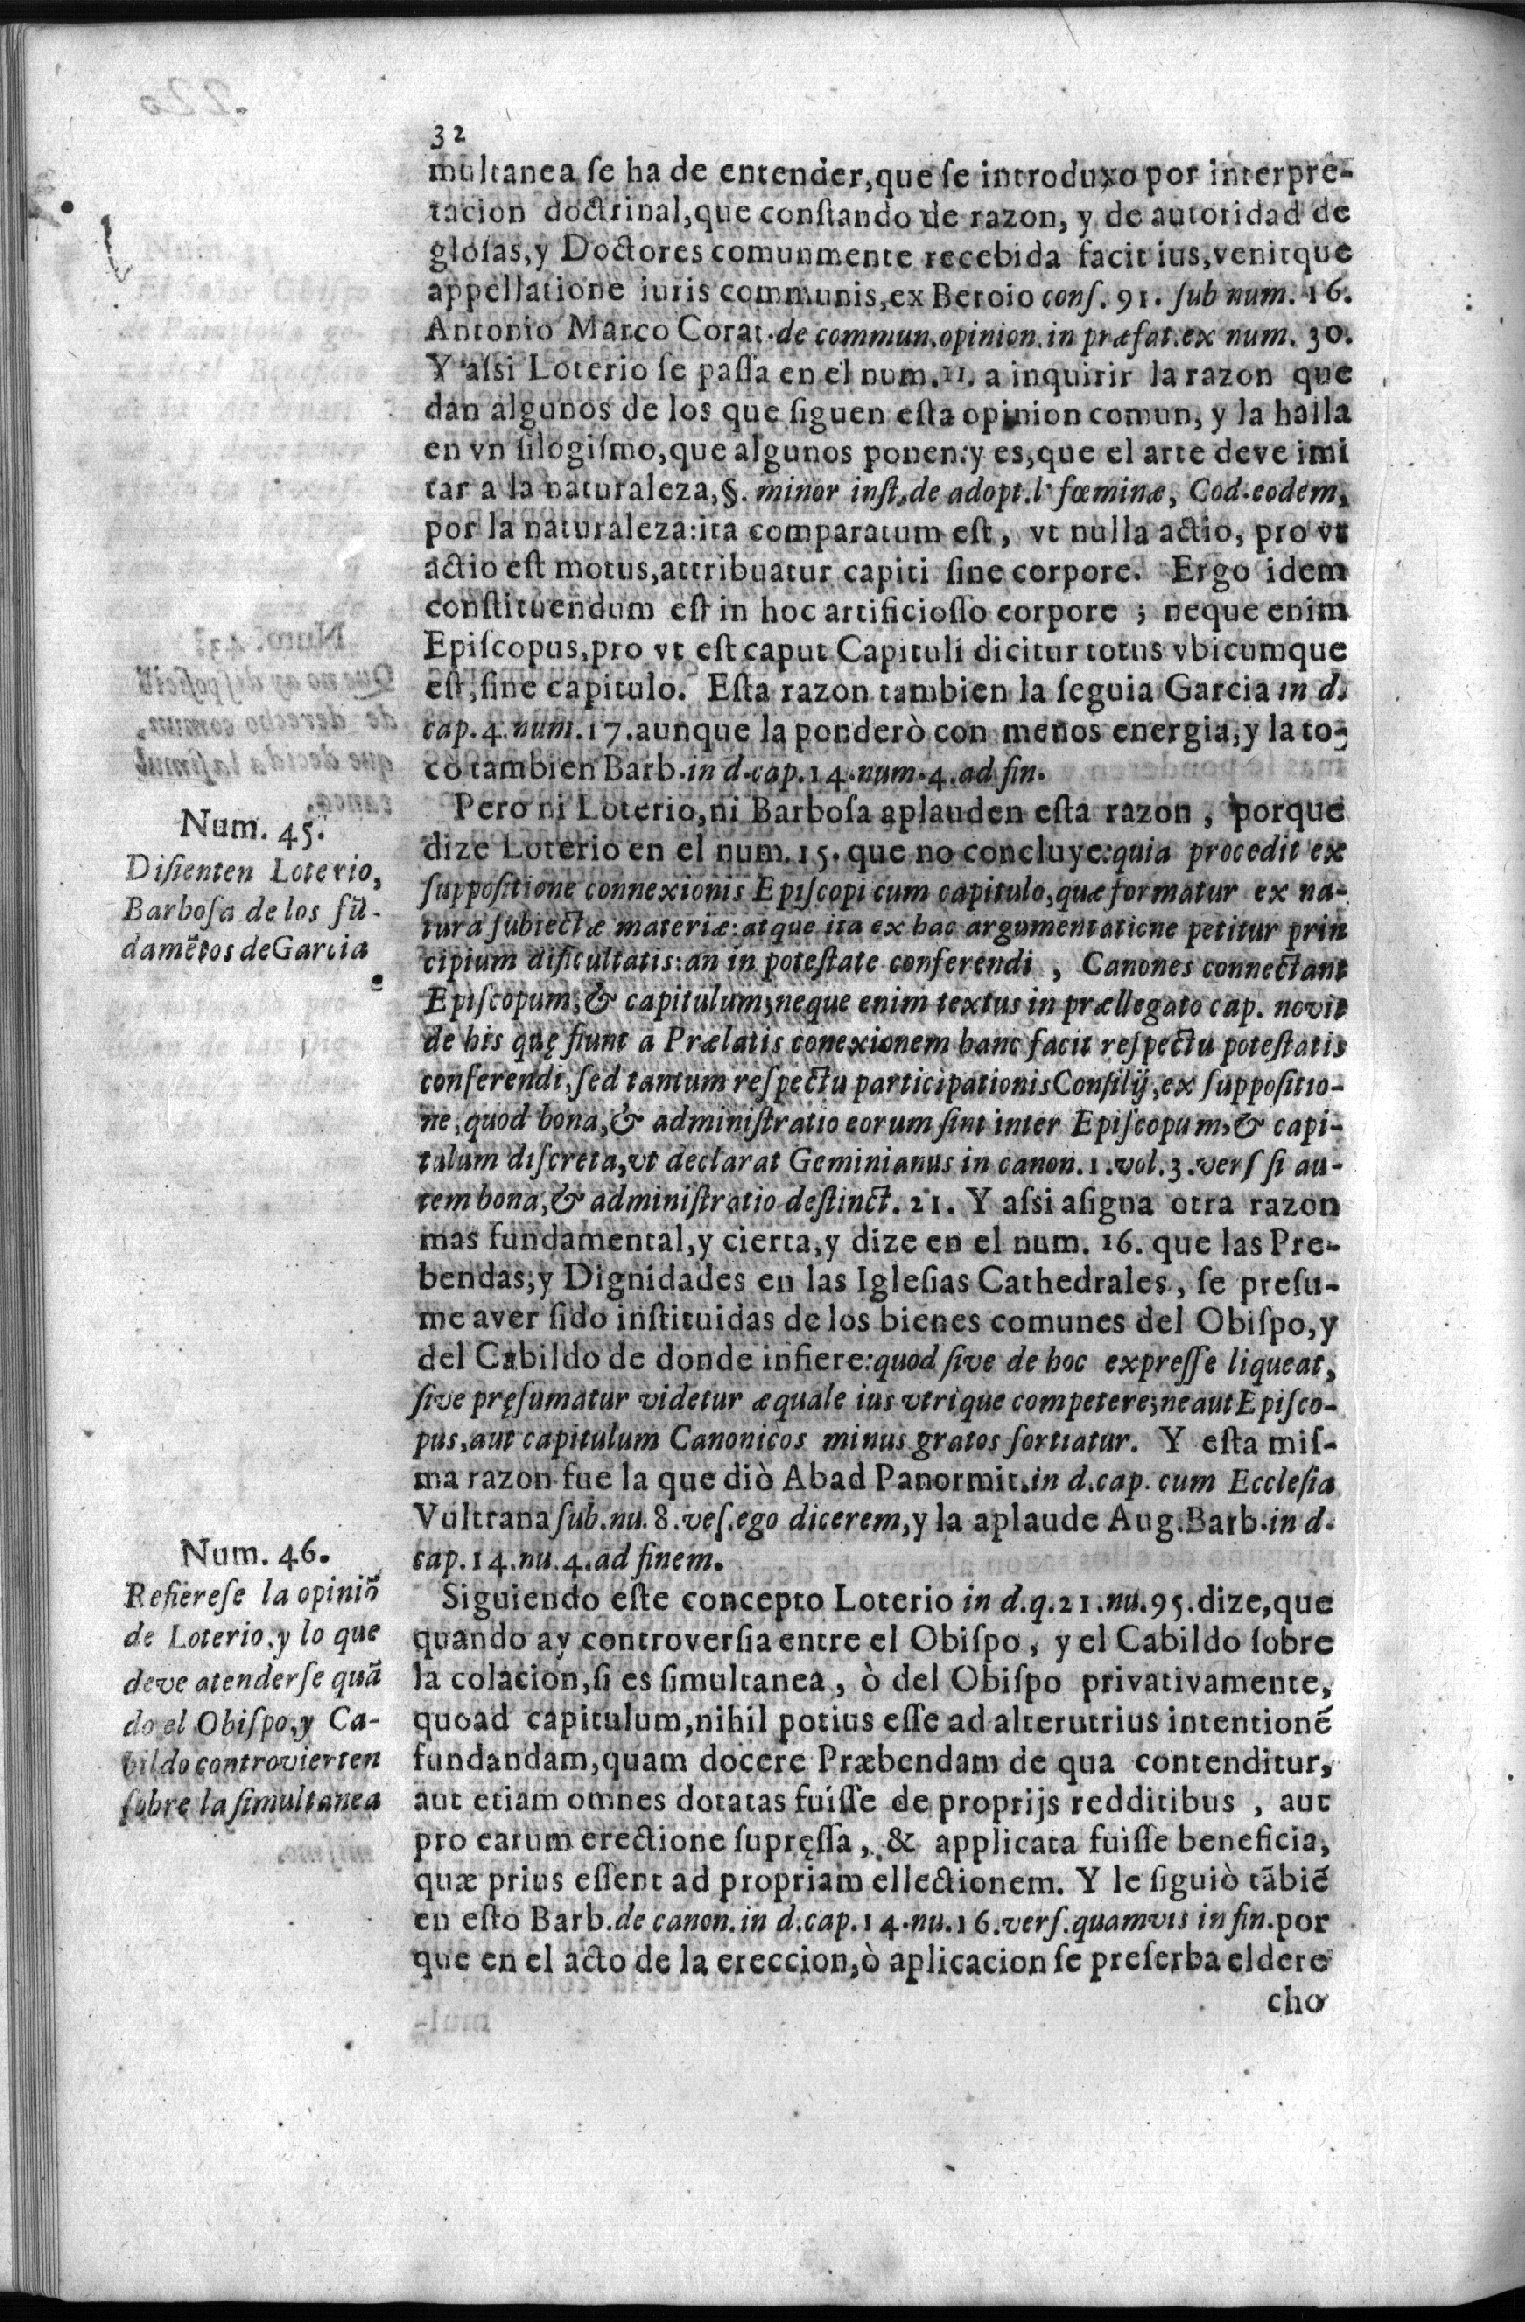 32
multanea ſe ha de entender,que ſe introduxo por interpre-
tacion doctrinal,que conſtando de razon, y de autoridad de
gloſas,y Doctores comunmente recebida facit ius,venitque
appellatione iuris communis,ex Beroio conſ. 91. ſub num. 16.
Antonio Marco Corat.de commun.opinion.in præfat.ex num. 30.
Y aſsi Loterio ſe paſſa en el num.11. a inquirir la razon que
dan algunos de los que ſiguen eſta opinion comun, y la halla
en vn ſilogiſmo,que algunos ponen:y es,que el arte deve imi
tar a la naturaleza,§. minor inſt.de adopt.l. fœminæ, Cod.eodem,
por la naturaleza:ita comparatum eſt, vt nulla actio, pro vt
actio eſt motus,attribuatur capiti ſine corpore. Ergo idem
conſtituendum eſt in hoc artificioſſo corpore ; neque enim
Epiſcopus,pro vt eſt caput Capituli dicitur totus vbicumque
eſt,ſine capitulo. Eſta razon tambien la ſeguia Garcia in d.
cap.4.num.17.aunque la ponderò con menos energia,y la to-
co tambien Barb.in d.cap.14.num.4.ad fin.
Num. 45.
Diſienten Loterio,
Barboſa de los fũ-
damẽtos de Garcia
Pero ni Loterio,ni Barboſa aplauden eſta razon , porque
dize Loterio en el num.15.que no concluye:quia procedit ex
ſuppoſitione connexionis Epiſcopi cum capitulo,quæ formatur ex na-
tura ſubiectæ materiæ:atque ita ex hac argumentatione petitur prin
cipium dificultatis:an in poteſtate conferendi , Canones connectant
Epiſcopum,& capitulum;neque enim textus in prællegato cap. novit
de his quę fiunt a Prælatis conexionem hanc facit reſpectu poteſtatis
conferendi,ſed tantum reſpectu participationis Conſilij,ex ſuppoſitio-
ne,quod bona,& adminiſtratio eorum ſint inter Epiſcopum,& capi-
tulum diſcreta,vt declarat Geminianus in canon.1.vol.3.verſ ſi au-
tem bona,& adminiſtratio deſtinct. 21. Y aſsi aſigna otra razon
mas fundamental,y cierta,y dize en el num. 16. que las Pre-
bendas,y Dignidades en las Igleſias Cathedrales, ſe preſu-
me aver ſido inſtituidas de los bienes comunes del Obiſpo,y
del Cabildo de donde infiere:quod ſive de hoc expreſſe liqueat,
ſive pręſumatur videtur æquale ius vtrique competere;ne aut Epiſco-
pus,aut capitulum Canonicos minus gratos ſortiatur. Y eſta miſ-
ma razon fue la que diò Abad Panormit.in d.cap. cum Eccleſia
Vultrana ſub.nu.8.veſ.ego dicerem,y la aplaude Aug.Barb.in d.
cap.14.nu.4.ad finem.
Num. 46.
Refiereſe la opiniõ
de Loterio,y lo que
deve atenderſe quã
do el Obiſpo,y Ca-
bildo controvierten
ſobre la ſimultanea
Siguiendo eſte concepto Loterio in d.q.21.nu.95.dize,que
quando ay controverſia entre el Obiſpo, y el Cabildo ſobre
la colacion,ſi es ſimultanea, ò del Obiſpo privativamente,
quoad capitulum,nihil potius eſſe ad alterutrius intentionẽ
fundandam,quam docere Præbendam de qua contenditur,
aut etiam omnes dotatas fuiſſe de proprijs redditibus , aut
pro earum erectione ſupręſſa, & applicata fuiſſe beneficia,
quæ prius eſſent ad propriam ellectionem. Y le ſiguiò tãbiẽ
en eſto Barb.de canon.in d.cap.14.nu.16.verſ.quamvis in fin.por
que en el acto de la ereccion,ò aplicacion ſe preſerba el dere
cho